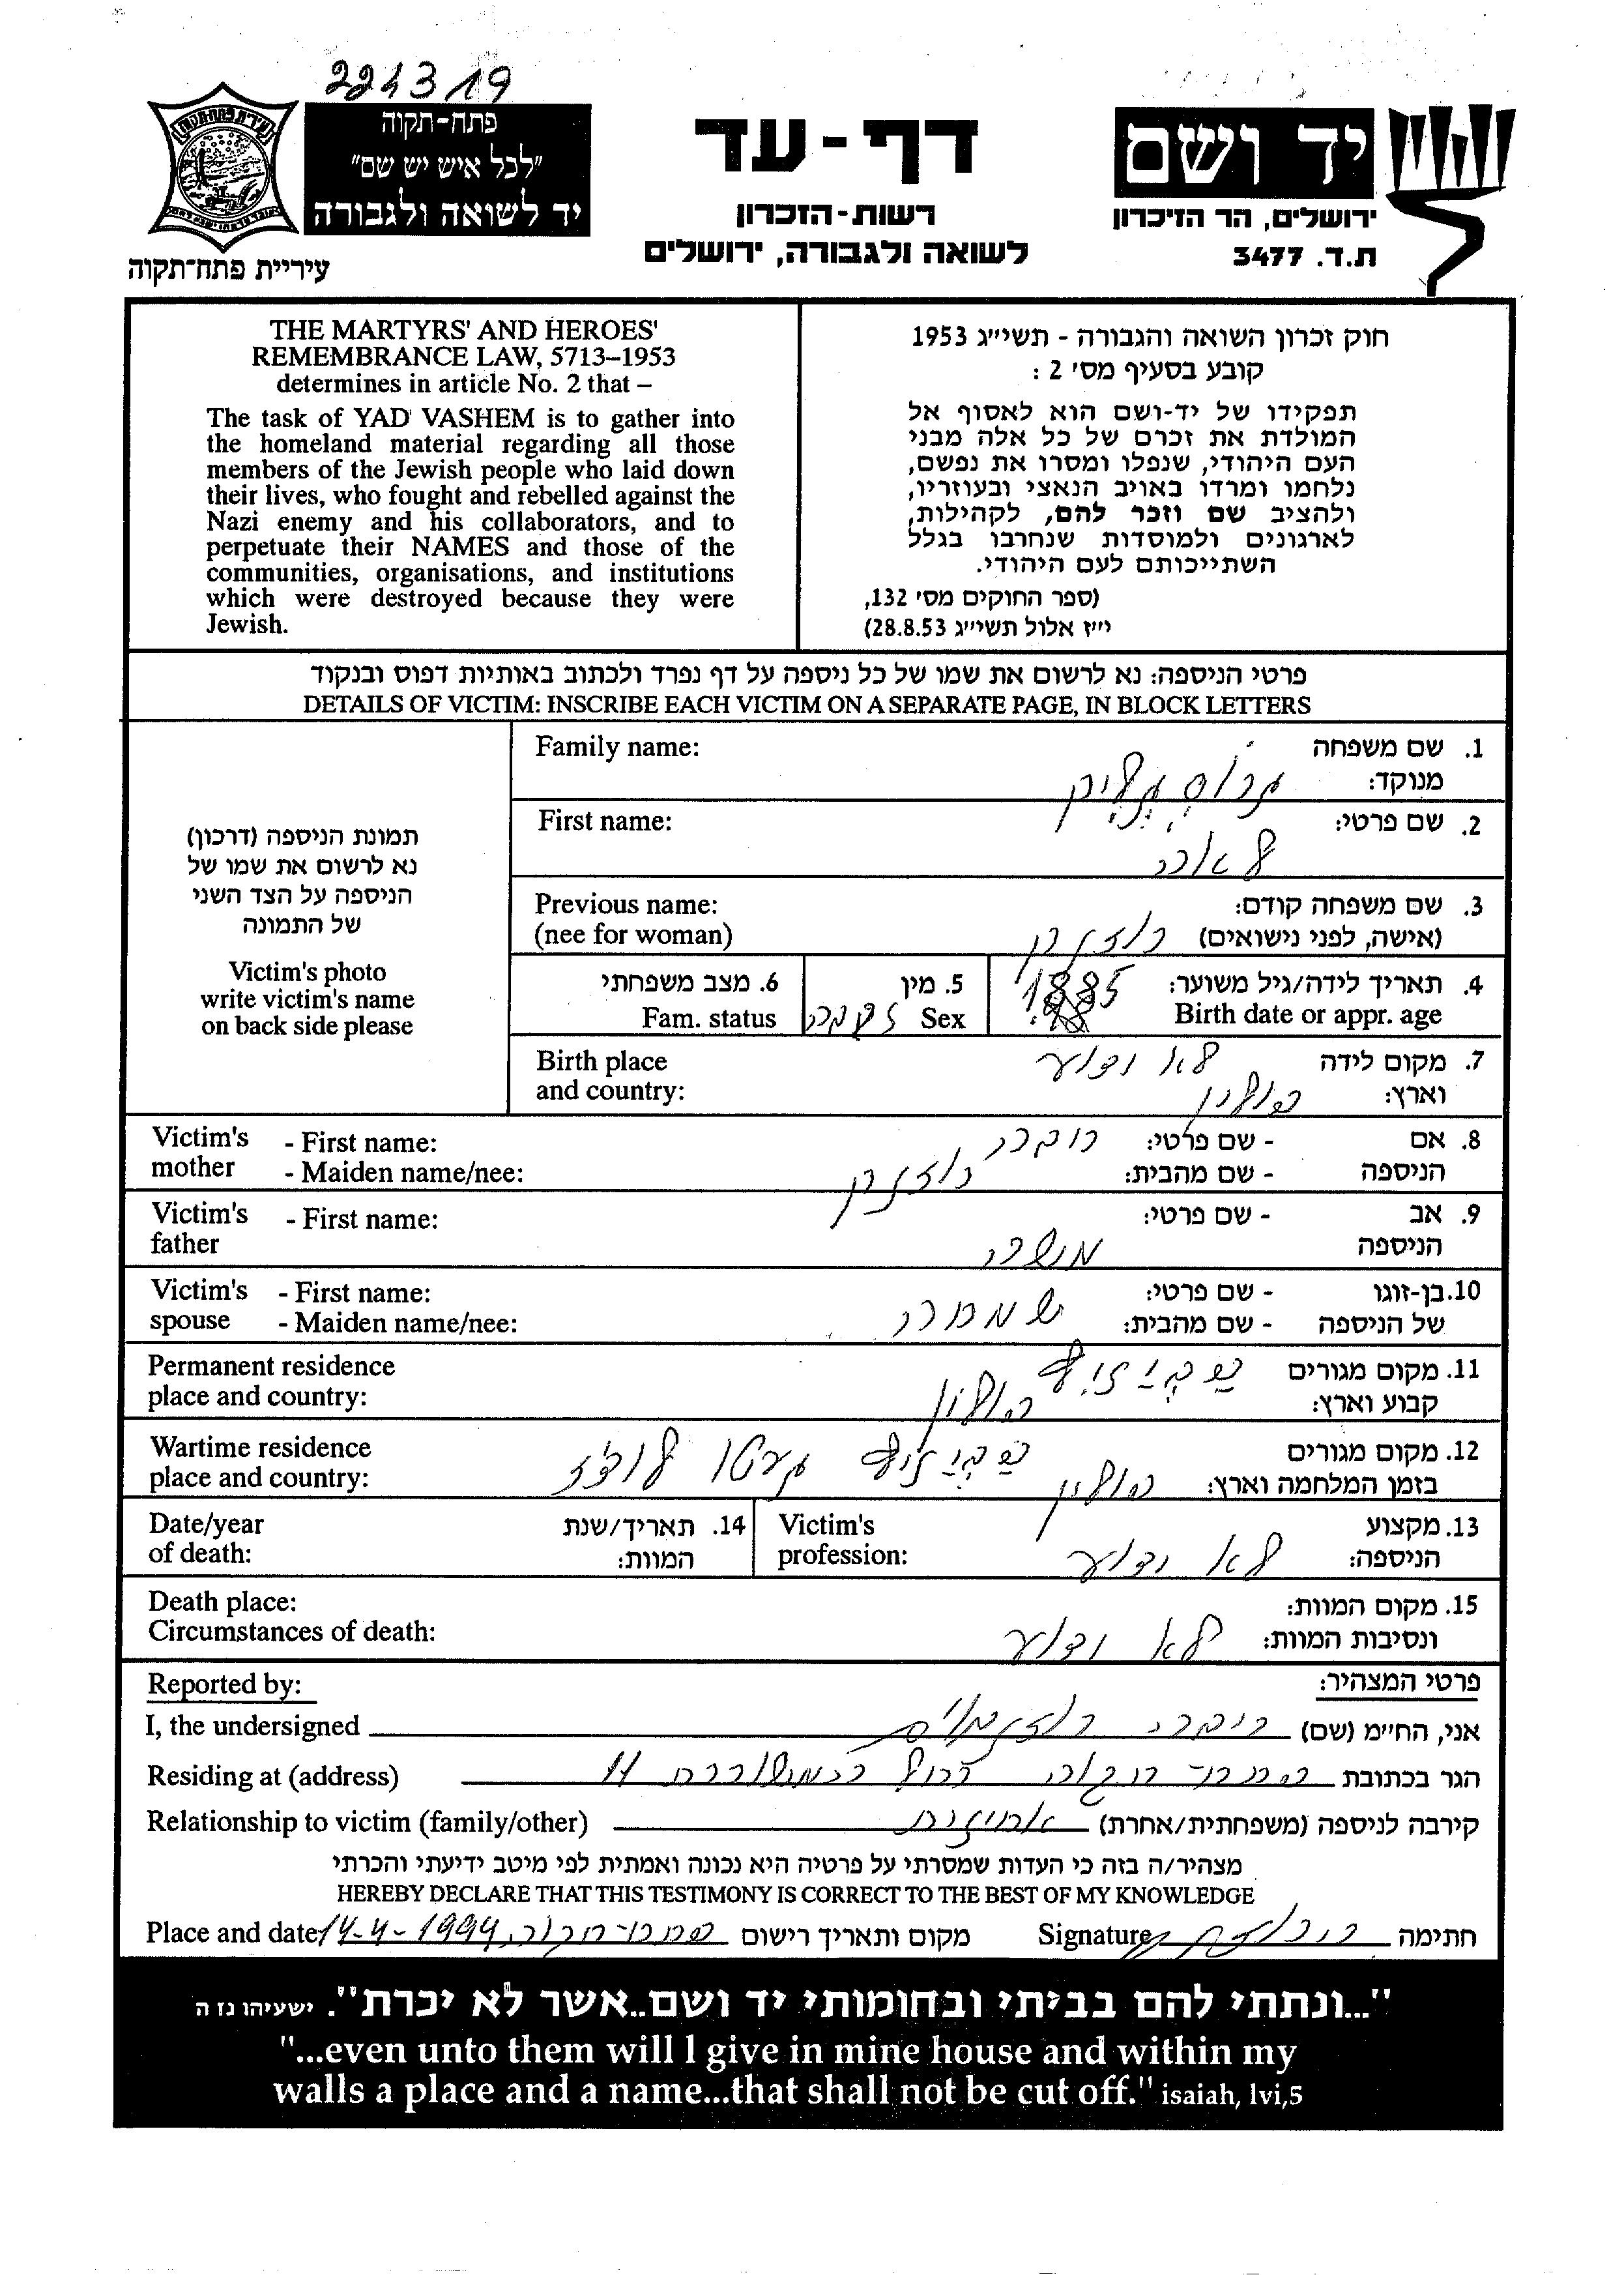 224319
פתח-תקוה
"לכל איש יש שם"
יד לשואה ולגבורה
עיריית פתח-תקוה
דף-עד
רשות-הזכרון
לשואה ולגבורה, ירושלים
יד ושם
ירושלים, הר הזיכרון
ת.ד. 3477
THE MARTYRS' AND HEROES'
REMEMBRANCE LAW, 5713–1953
determines in article No. 2 that –
The task of YAD VASHEM is to gather into
the homeland material regarding all those
members of the Jewish people who laid down
their lives, who fought and rebelled against the
Nazi enemy and his collaborators, and to
perpetuate their NAMES and those of the
communities, organisations, and institutions
which were destroyed because they were
Jewish.
חוק זכרון השואה והגבורה - תשי״ג 1953
קובע בסעיף מס׳ 2 :
תפקידו של יד-ושם הוא לאסוף אל
המולדת את זכרם של כל אלה מבני
העם היהודי, שנפלו ומסרו את נפשם,
נלחמו ומרדו באויב הנאצי ובעוזריו,
ולהציב שם וזכר להם, לקהילות,
לארגונים ולמוסדות שנחרבו בגלל
השתייכותם לעם היהודי.
(ספר החוקים מס׳ 132,
י״ז אלול תשי״ג 28.8.53)
פרטי הניספה: נא לרשום את שמו של כל ניספה על דף נפרד ולכתוב באותיות דפוס ובנקוד
DETAILS OF VICTIM: INSCRIBE EACH VICTIM ON A SEPARATE PAGE, IN BLOCK LETTERS
תמונת הניספה (דרכון)
נא לרשום את שמו של
הניספה על הצד השני
של התמונה
Victim's photo
write victim's name
on back side please
Family name: 1. שם משפחה
מנוקד:
First name: 2. שם פרטי:
לאה
Previous name: 3. שם משפחה קודם:
(nee for woman) (אישה, לפני נישואים)
6. מצב משפחתי 5. מין 4. תאריך לידה/גיל משוער:
Fam. status Sex נקבה Birth date or appr. age 1885
Birth place 7. מקום לידה לא ידוע
and country: וארץ: פולין
Victim's mother - First name: 8. אם הניספה - שם פרטי: רבקה
- Maiden name/nee: - שם מהבית:
Victim's father - First name: 9. אב הניספה - שם פרטי:
משה
Victim's spouse - First name: 10. בן-זוגו של הניספה - שם פרטי: שמחה
- Maiden name/nee: - שם מהבית:
Permanent residence 11. מקום מגורים
place and country: קבוע וארץ: פולין
Wartime residence 12. מקום מגורים גטו לודז
place and country: בזמן המלחמה וארץ: פולין
Date/year 14. תאריך/שנת Victim's 13. מקצוע
of death: המוות: profession: הניספה: לא ידוע
Death place: 15. מקום המוות:
Circumstances of death: ונסיבות המוות: לא ידוע
Reported by: פרטי המצהיר:
I, the undersigned אני, החי״מ (שם)
Residing at (address) הגר בכתובת פתח-תקוה
Relationship to victim (family/other) קירבה לניספה (משפחתית/אחרת) אחיינית
מצהיר/ה בזה כי העדות שמסרתי על פרטיה היא נכונה ואמתית לפי מיטב ידיעתי והכרתי
HEREBY DECLARE THAT THIS TESTIMONY IS CORRECT TO THE BEST OF MY KNOWLEDGE
Place and date מקום ותאריך רישום פתח-תקוה, 14-4-1994 Signature חתימה
"...ונתתי להם בביתי ובחומותי יד ושם..אשר לא יכרת". ישעיהו נז ה
"...even unto them will I give in mine house and within my
walls a place and a name...that shall not be cut off." isaiah, lvi,5